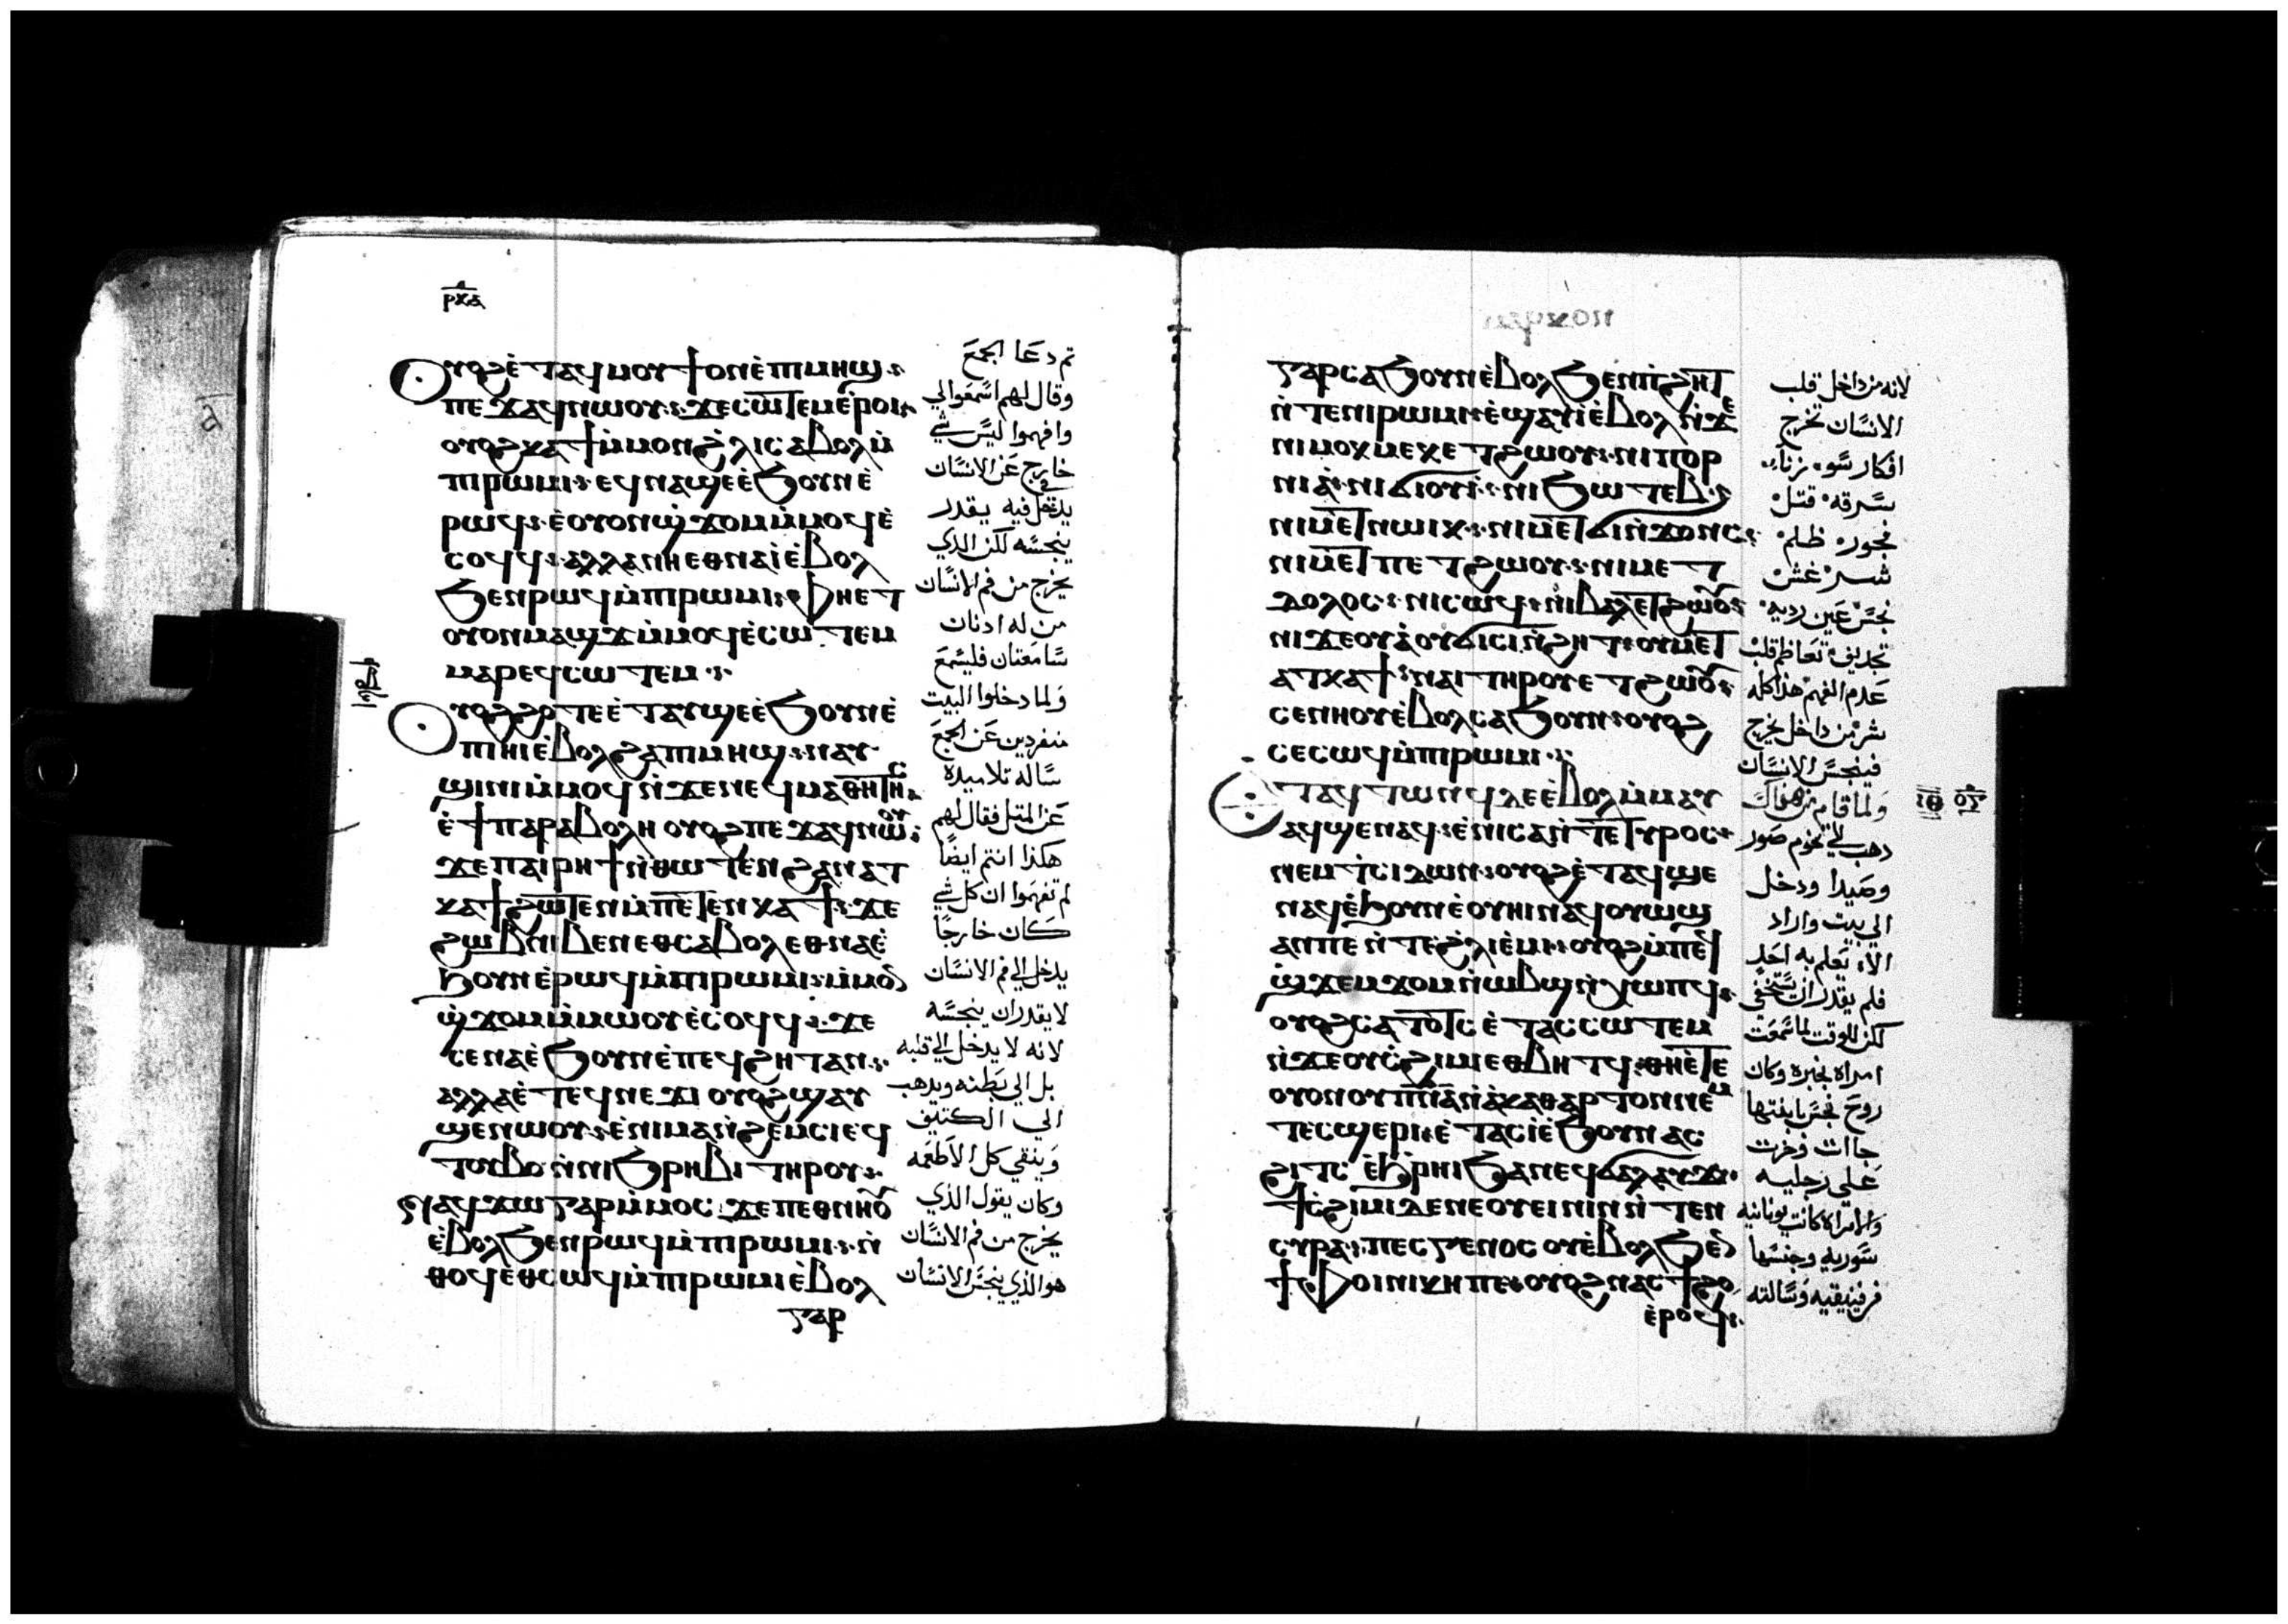 ⲣⲕⲇ
ⲟⲩⲟϩ ⲉ̇ⲧⲁϥⲙⲟⲩϯ ⲟⲛ ⲉ̇ⲡⲓⲙⲏϣ
ⲡⲉϫⲁϥ ⲛⲱⲟⲩ ϫⲉ ⲥⲱⲧⲉⲙ ⲉ̇ⲣⲟⲓ
ⲟⲩⲟϩ ⲕⲁϯ ⲙ̇ⲙⲟⲛ ϩ̇ⲗⲓ ⲥⲁⲃⲟⲗ ⲙ̇
ⲡⲓⲣⲱⲙⲓ ⲉϥⲛⲁϣⲉ ⲉ̇ϧⲟⲩⲛ ⲉ̇
ⲣⲱϥ ⲉ̇ⲟⲩⲟⲛ ϣ̇ϫⲟⲙ ⲙ̇ⲙⲟϥ ⲉ̇
ⲥⲟϥϥ ⲁⲗⲗⲁ ⲛⲏⲉⲑⲛⲁⲓ̇ ⲉ̇ⲃⲟⲗ
ϧⲉⲛ ⲣⲱϥ ⲙ̇ⲡⲓⲣⲱⲙⲓ ⲫⲏⲉⲧ
ⲟⲩⲟⲛ ⲙⲁϣϫ ⲙ̇ⲙⲟϥ ⲉ̇ⲥⲱⲧⲉⲙ
ⲙⲁⲣⲉϥⲥⲱⲧⲉⲙ
ⲟⲩⲟϩ ϩⲟⲧⲉ ⲉ̇ⲧⲁⲩϣⲉ ⲉ̇ϧⲟⲩⲛ ⲉ̇
ⲡⲓⲏⲓ ⲉ̇ⲃⲟⲗ ϩⲁ ⲡⲓⲙⲏϣ ⲛⲁⲩ
ϣⲓⲛⲓ ⲙ̇ⲙⲟϥ ⲛ̇ϫⲉ ⲛⲉϥⲙⲁⲑⲏⲧⲏⲥ
ⲉ̇ϯⲡⲁⲣⲁⲃⲟⲗⲏ ⲟⲩⲟϩ ⲡⲉϫⲁϥ ⲛⲱⲟⲩ
ϫⲉ ⲡⲁⲓⲣⲏϯ ⲛ̇ⲑⲱⲧⲉⲛ ϩⲁⲛⲁⲧ
ⲕⲁϯ ϩⲱⲧⲉⲛ ⲙ̇ⲡⲉⲧⲉⲛⲕⲁϯ ϫⲉ
ϩⲱⲃ ⲛⲓⲃⲉⲛ ⲉⲑⲥⲁⲃⲟⲗ ⲉⲑⲛⲁⲉ̇
ϧⲟⲩⲛ ⲉ̇ⲣⲱϥ ⲙ̇ⲡⲓⲣⲱⲙⲓ ⲙ̇ⲙⲟⲛ
ϣ̇ϫⲟⲙ ⲙ̇ⲙⲱⲟⲩ ⲉ̇ⲥⲟϥϥ ϫⲉ
ⲥⲉⲛⲁⲉ̇ϧⲟⲩⲛ ⲉ̇ⲡⲉϥϩⲏⲧ ⲁⲛ
ⲁⲗⲗⲁ ⲉ̇ⲧⲉϥⲛⲉϫⲓ ⲟⲩⲟϩ ϣⲁⲩ
ϣⲉⲛⲱⲟⲩ ⲉ̇ⲛⲓⲙⲁⲛ̇ϩⲉⲙⲥⲓ ⲉϥ
ⲧⲟⲩⲃⲟ ⲛ̇ⲛⲓϧⲣⲏⲟⲩⲓ ⲧⲏⲣⲟⲩ
ⲛⲁϥϫⲱ ⲅⲁⲣ ⲙ̇ⲙⲟⲥ ϫⲉ ⲡⲉⲑⲛⲏⲟⲩ
ⲉ̇ⲃⲟⲗ ϧⲉⲛ ⲣⲱϥ ⲙ̇ⲡⲓⲣⲱⲙⲓ ⲛ̇
ⲑⲟϥ ⲉⲑⲥⲱϥ ⲙ̇ⲡⲓⲣⲱⲙⲓ ⲉ̇ⲃⲟⲗ
ⲅⲁⲣ
ثم دعا الجمع
وقال لهم اسمعوا لي
وافهموا ليس شي
خارج عن الانسان
يدخل فيه يقدر
ينجسه لكن الذي
يخرج من فم الانسان
من له اذنان
سامعتان فليسمع
ولما دخلوا البيت
منفردين عن الجمع
ساله تلاميذه
عن المثل فقال لهم
هكذا انتم ايضا
لم تفهموا ان كل شي
كان خارجا
يدخل الي فم الانسان
لا يقدر ان ينجسه
لانه لا يدخل الي قلبه
بل الي بطنه ويذهب
الي الكنيف
وينقي كل الاطعمه
وكان يقول الذي
يخرج من فم الانسان
هو الذي ينجس الانسان
ⲅⲁⲣ ⲥⲁϧⲟⲩⲛ ⲉ̇ⲃⲟⲗ ϧⲉⲛ ⲡϩⲏⲧ
ⲛ̇ⲧⲉ ⲛⲓⲣⲱⲙⲓ ⲉ̇ϣⲁⲩⲓ̇ ⲉ̇ⲃⲟⲗ ⲛ̇ϫⲉ
ⲛⲓⲙⲟⲕⲙⲉⲕ ⲉⲧϩⲱⲟⲩ ⲛⲓⲡⲟⲣ
ⲛⲓⲁ̇ ⲛⲓϭⲓⲟⲩⲓ̇ ⲛⲓϧⲱⲧⲉⲃ
ⲛⲓⲙⲉⲧⲛⲱⲓⲕ ⲛⲓⲙⲉⲧϭⲓⲛ̇ϫⲟⲛⲥ
ⲛⲓⲙⲉⲧⲡⲉⲧϩⲱⲟⲩ ⲛⲓⲙⲉⲧ
ⲇⲟⲗⲟⲥ ⲛⲓⲥⲱϥ ⲛⲓⲃⲁⲗ ⲉⲧϩⲱⲟⲩ
ⲛⲓϫⲉⲟⲩⲁ̇ ⲟⲩϭⲓⲥⲓ ⲛ̇ϩⲏⲧ ⲟⲩⲙⲉⲧ
ⲁⲧⲕⲁϯ ⲛⲁⲓ ⲧⲏⲣⲟⲩ ⲉⲧϩⲱⲟⲩ
ⲥⲉⲛⲏⲟⲩ ⲉ̇ⲃⲟⲗ ⲥⲁϧⲟⲩⲛ ⲟⲩⲟϩ
ⲥⲉⲥⲱϥ ⲙ̇ⲡⲓⲣⲱⲙⲓ
ⲉ̇ⲧⲁϥⲧⲱⲛϥ ⲇⲉ ⲉ̇ⲃⲟⲗ ⲙ̇ⲙⲁⲩ
ⲁϥϣⲉⲛⲁϥ ⲉ̇ⲛⲓⲥⲁ ⲛ̇ⲧⲉ ⲧⲩⲣⲟⲥ
ⲛⲉⲙ ⲧ̇ⲥⲓⲇⲱⲛ ⲟⲩⲟϩ ⲉ̇ⲧⲁϥϣⲉ
ⲛⲁϥ ⲉ̇ϧⲟⲩⲛ ⲉ̇ⲟⲩⲏⲓ ⲛⲁϥⲟⲩⲱϣ
ⲁⲛ ⲡⲉ ⲛ̇ⲧⲉ ϩ̇ⲗⲓ ⲉ̇ⲙⲓ ⲟⲩⲟϩ ⲙ̇ⲡⲉϥ
ϣ̇ϫⲉⲙϫⲟⲙ ⲛ̇ⲱⲃϣ ⲛ̇ⲭⲱⲡϥ
ⲟⲩⲟϩ ⲥⲁⲧⲟⲧⲥ ⲉ̇ⲧⲁⲥⲥⲱⲧⲉⲙ
ⲛ̇ϫⲉ ⲟⲩⲥ̇ϩⲓⲙⲓ ⲉⲑⲃⲏⲧϥ ⲑⲏⲉ̇ⲧⲉ
ⲟⲩⲟⲛ ⲟⲩⲡⲛⲁ ⲛ̇ⲁ̇ⲕⲁⲑⲁⲣⲧⲟⲛ ⲛⲉⲙ
ⲧⲉⲥϣⲉⲣⲓ ⲉ̇ⲧⲁⲥⲓ̇ ⲉ̇ϧⲟⲩⲛ ⲁⲥ
ϩⲓⲧⲥ ⲉ̇ϧ̇ⲣⲏⲓ ϧⲁ ⲛⲉϥϭⲁⲗⲁⲩϫ
ϯⲥ̇ϩⲓⲙⲓ ⲇⲉ ⲛⲉ ⲟⲩⲉⲓⲛⲓⲛ ⲛ̇ⲧⲉⲛ
ⲥⲩⲣⲁ ⲡⲉⲥⲅⲉⲛⲟⲥ ⲟⲩⲉ̇ⲃⲟⲗ ϧⲉⲛ
ϯⲫⲟⲓⲛⲓⲕⲏ ⲡⲉ ⲟⲩⲟϩ ⲛⲁⲥϯϩⲟ
ⲉ̇ⲣⲟϥ
لانه من داخل قلب
الانسان تخرج
افكار سوء زناء
سرقه قتل
فجور ظلم
شر غش
نجس عين رديه
تجديف تعاظم قلب
عدم الفهم هذا كله
شر من داخل يخرج
فينجس الانسان
ولما قام من هناك
ذهب الي تخوم صور
وصيدا ودخل
الي بيت واراد
الا يعلم به احد
فلم يقدر ان يستخفي
لكن للوقت لما سمعت
امراه بخبره وكان
روح نجس بابنتها
جاات وخرت
علي رجليه
والامراه كانت يونانيه
سوريه وجنسها
فرفينيقيه وسالته